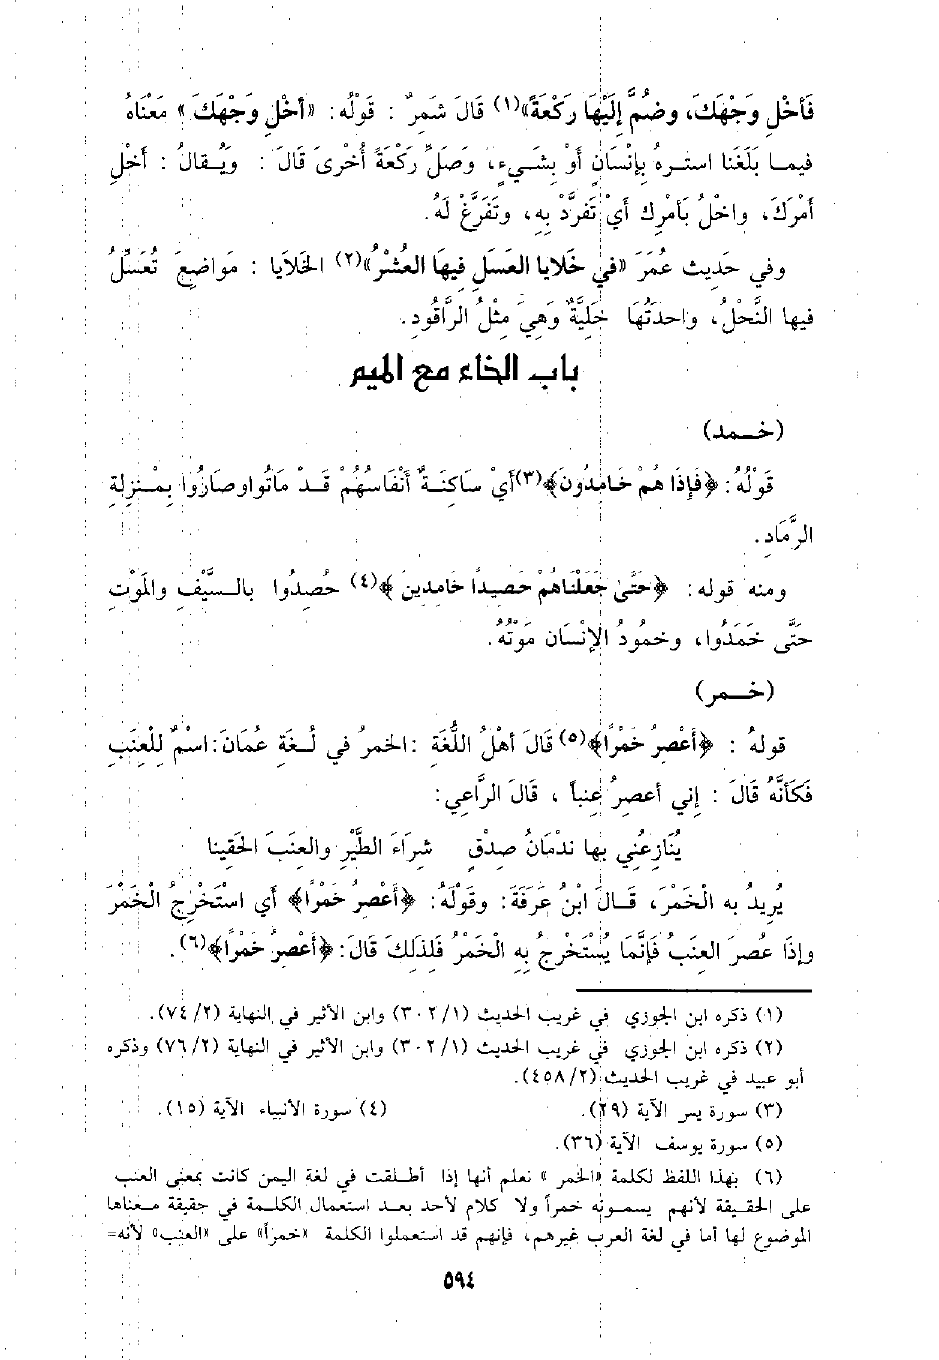 فَأخْلِ وَجْهَكَ، وضُمَّ إِلَيْهَا رَكْعَةً»(١) قَالَ شَمِرٌ : قَوْلُه: «أخْلِ وَجْهَكَ» مَعْنَاهُ
فيمـا بَلَغَنا استـرهُ بِإنْسَانٍ أوْ بشَـيءٍ، وَصَلِّ رَكْعَةً أُخْرىَ قَالَ : وَيُـقالُ : أخْلِ
أمْرَكَ، واخْلُ بَأمْرِك أيْ تَفرَّدْ بِهِ، وتَفَرَّغْ لَهُ.
وفي حَدِيث عُمَرَ «في خَلايا العَسَلِ فِيهَا العُشْرُ»(٢) الخَلايَا : مَواضِعَ تُعَسِّلُ
فيها النَّحْلُ، واحدَتُهَا خَلِيَّةٌ وَهِيَ مثْلُ الرَّاقُودِ.
باب الخاء مع الميم
(خـمد)
قَوْلُهُ: ﴿فَإِذَا هُمْ خَامِدُونَ﴾(٣)أيْ سَاكِنَـةٌ أنْفَاسُهُمْ قَـدْ مَاتُوا وصَارُوا بِمْـنزِلةِ
الرَّمَادِ.
ومنه قوله: ﴿حَتَّى جَعَلْنَاهُمْ حَصِيداً خَامِدِينَ﴾(٤) حُصِدُوا بالـسَّيْفِ والمَوْتِ
حَتَّى خَمَدُوا، وخمُودُ الإنْسَان مَوْتُهُ.
(خـمر)
قولهُ : ﴿أَعْصِرُ خَمْرًا﴾(٥) قَالَ أهْلُ اللُّغَةِ :الخمرُ في لُـغَةِ عمَانَ:اسْمٌ لِلْعِنَبِ
فَكَأنَّهُ قَالَ : إني أعصِرُ عِنباً ، قَالَ الرَّاعِي:
يُنَازِعُنِي بها ندْمَانُ صِدْقٍ شِرَاءَ الطَّيْرِ والعِنَبَ الحَقِينا
يُرِيدُ به الْخَمْرَ، قَـالَ ابْنُ عَرَفَةَ: وقَوْلَهُ: ﴿أَعْصِرُ خَمْرًا﴾ أي استَخْرِجُ الْخَمْرَ
وإذَا عصُرَ العِنَبُ فَإِنَّمَا يُسْتَخْرجُ بِهِ الْخَمْرُ فَلِذَلِكَ قَالَ:﴿أَعْصِرُ خَمْرًا﴾(٦).
(١) ذكره ابن الجوزي في غريب الحديث (٣٠٢/١) وابن الأثير في النهاية (٧٤/٢).
(٢) ذكره ابن الجوزي في غريب الحديث (٣٠٢/١) وابن الأثير في النهاية (٧٦/٢) وذكره
أبو عبيد في غريب الحديث (٤٥٨/٢).
(٣) سورة يس الآية (٢٩). (٤) سورة الأنبياء الآية (١٥).
(٥) سورة يوسف الآية (٣٦).
(٦) بهذا اللفظ لكلمة «الخمر» نعلم أنها إذا أطـلقت في لغة اليمن كانت بمعنى العنب
على الحقـيقة لأنهم يسمـونه خمراً ولا كلام لأحد بعـد استعمال الكلـمة في حقيقة مـعناها
الموضوع لها أما في لغة العرب غيرهم، فإنهم قد استعملوا الكلمة «خمراً» على «العنب» لأنه=
٥٩٤